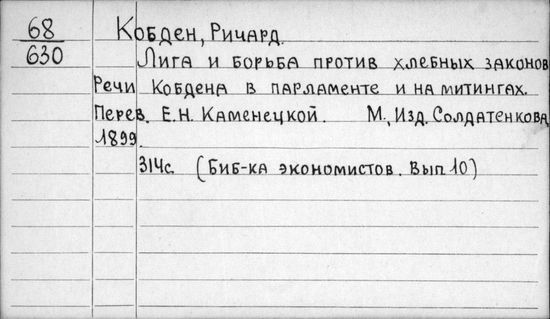 68
630
Кобден, Ричард.
Лига и борьба против хлебных законов
Речи Кобдена в парламенте и на митингах.
Перев. Е.Н. Каменецкой. М., Изд. Солдатенкова
1899.
314с. (Биб-ка экономистов. Вып 10)